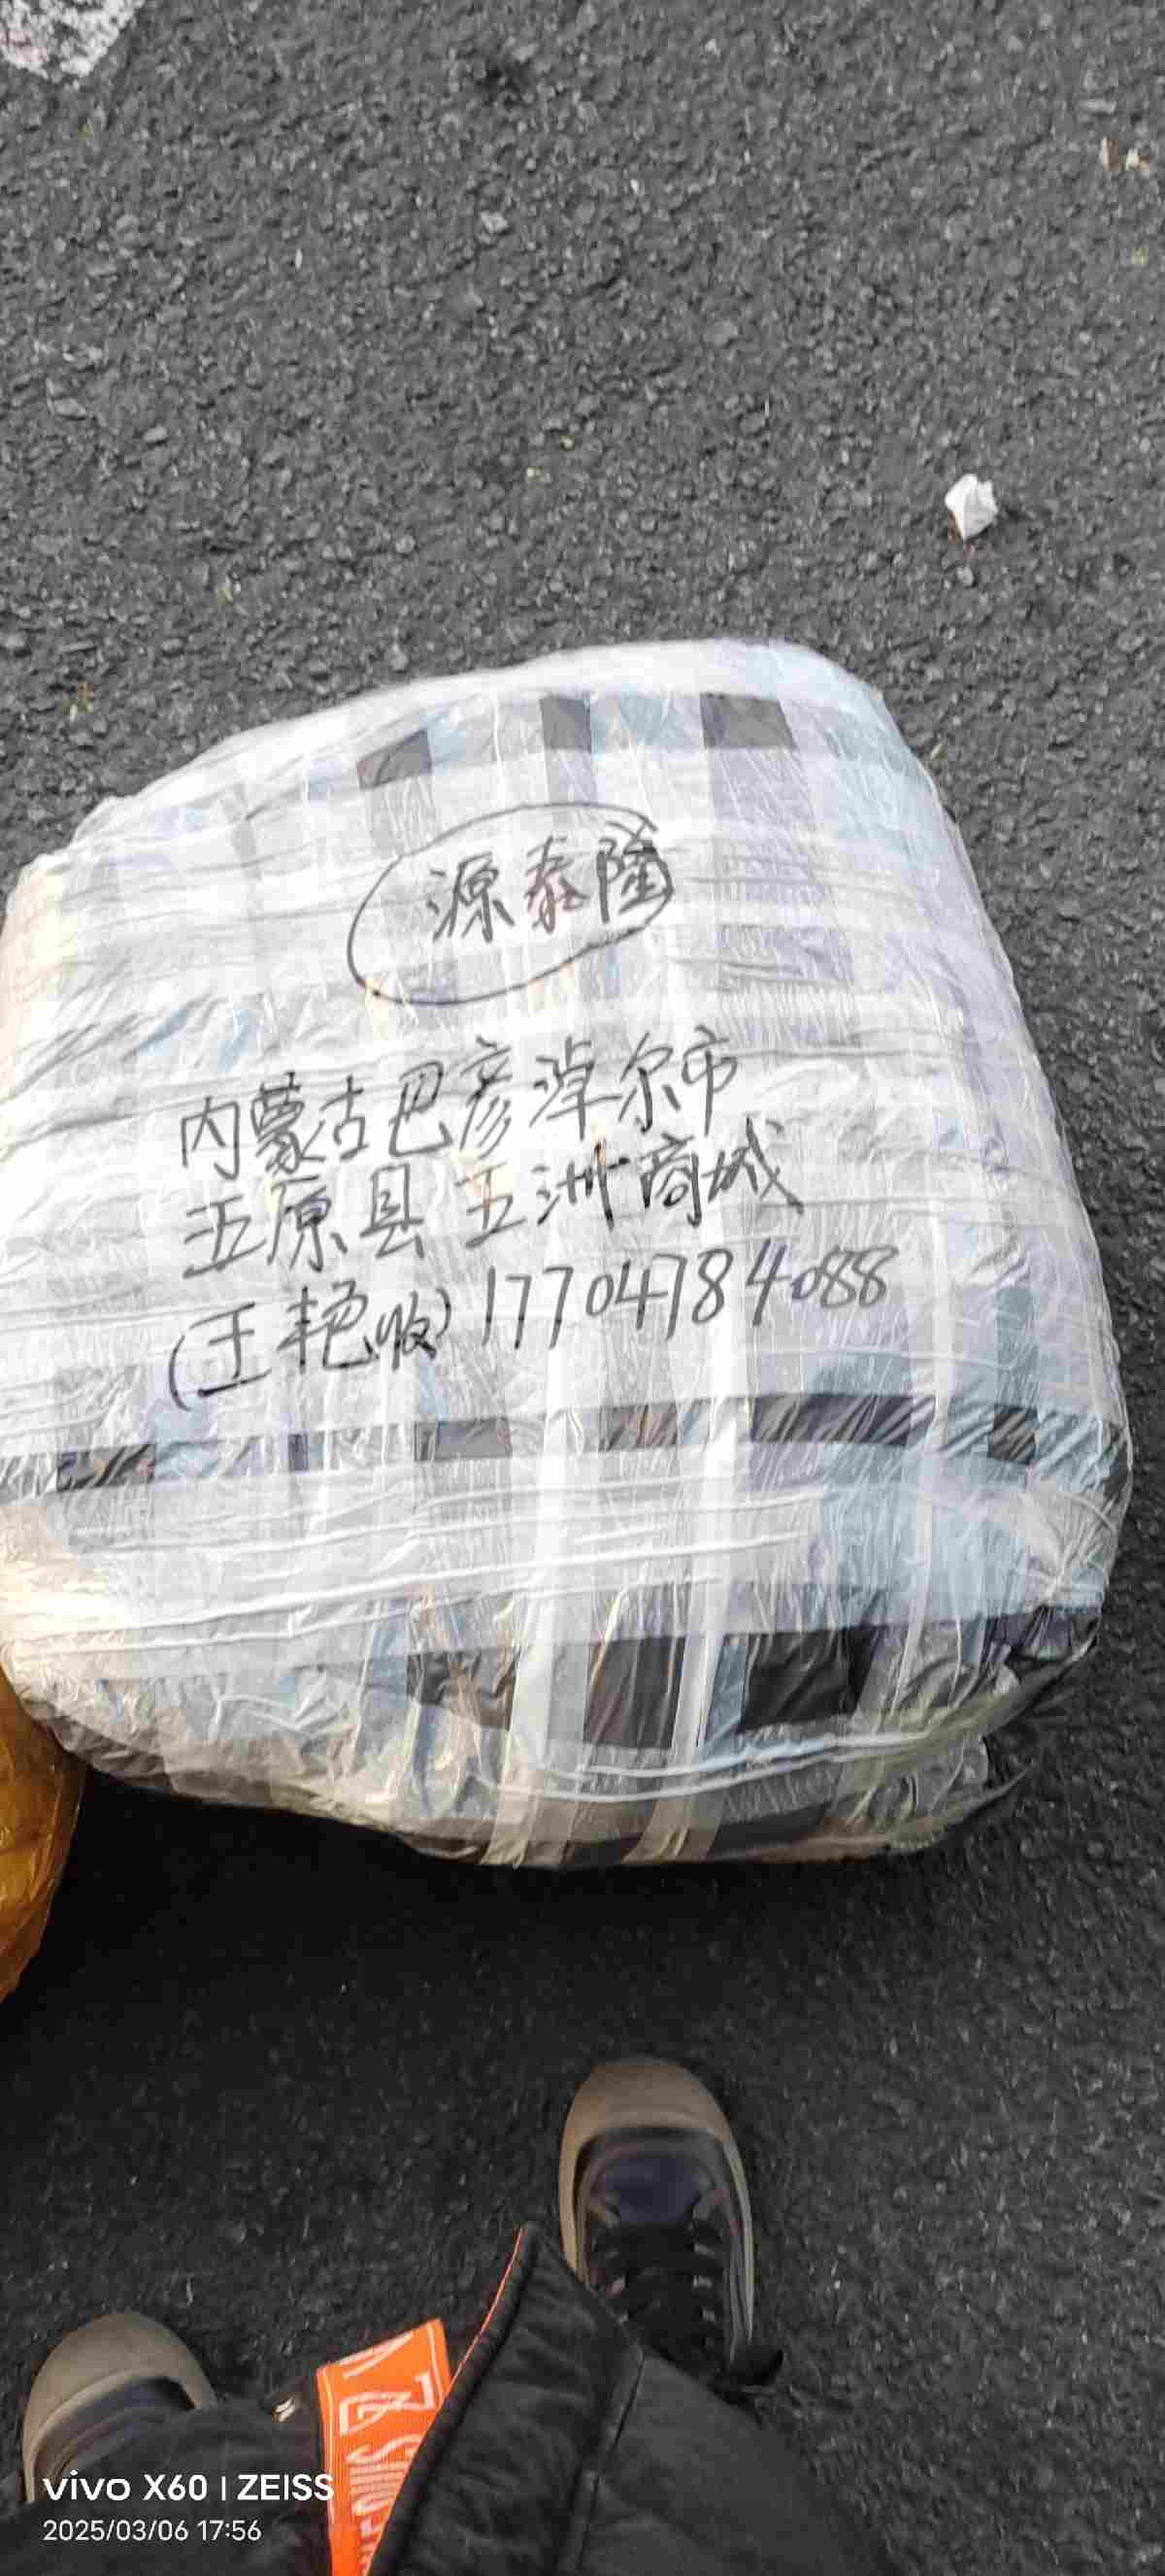 源泰隆
内蒙古巴彦淖尔市
五原县五洲商城
(王艳收) 17704784088
vivo X60 | ZEISS
2025/03/06 17:56